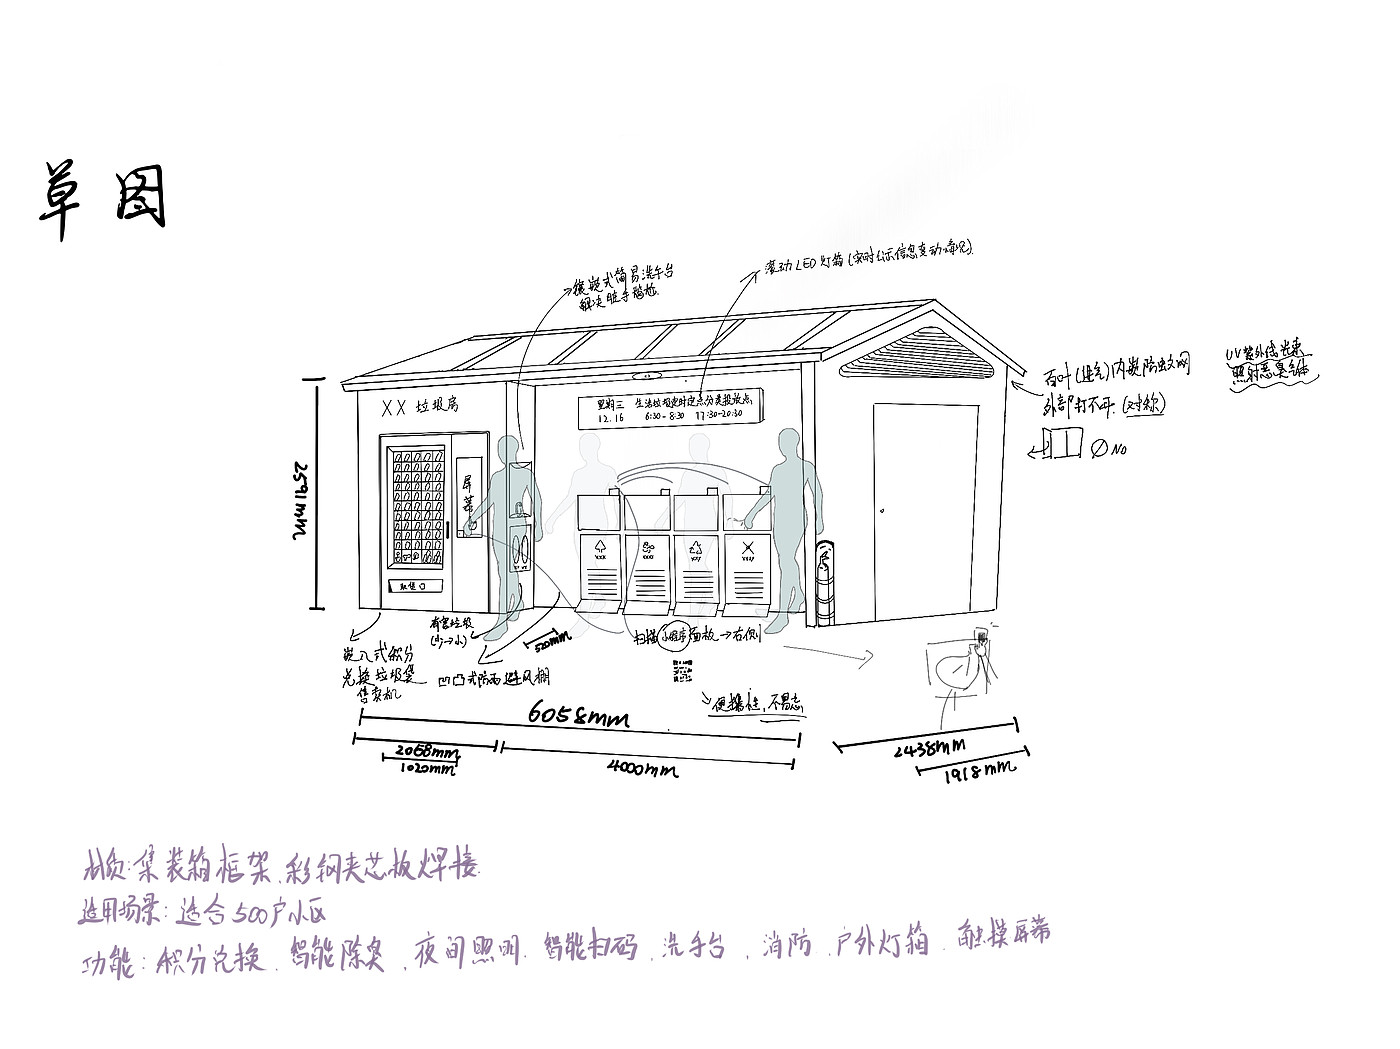 草图
滚动LED灯箱(实时公示信息变动情况)
镶嵌式简易洗手台
解决脏手尴尬.
百叶(进气)内嵌防蚊网
外部打不开.(对称)
NO
UV紫外线光束
照射恶臭气体
XX 垃圾房
星期三 生活垃圾定时定点分类投放点
12.16 6:30-8:30 17:30-20:30
屏幕
取货口
2591mm
有害垃圾
嵌入式积分
兑换垃圾袋
售卖机
凹凸式防雨避风棚
520mm
扫描小程序面板→右侧
便携性,不易忘
6058mm
2058mm
1020mm
4000mm
2438mm
1918mm
材质:集装箱框架.彩钢夹芯板焊接.
适用场景:适合500户小区
功能:积分兑换.智能除臭.夜间照明.智能扫码.洗手台.消防.户外灯箱.触摸屏幕